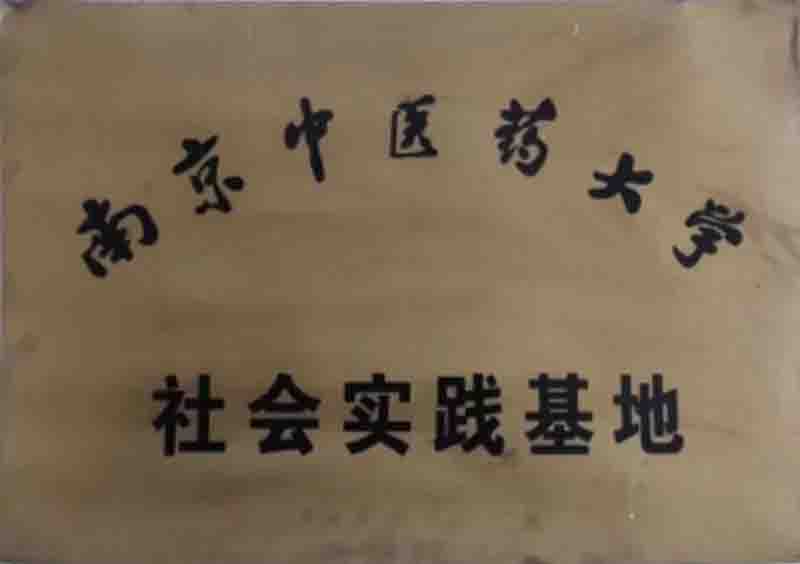 南京中医药大学
社会实践基地